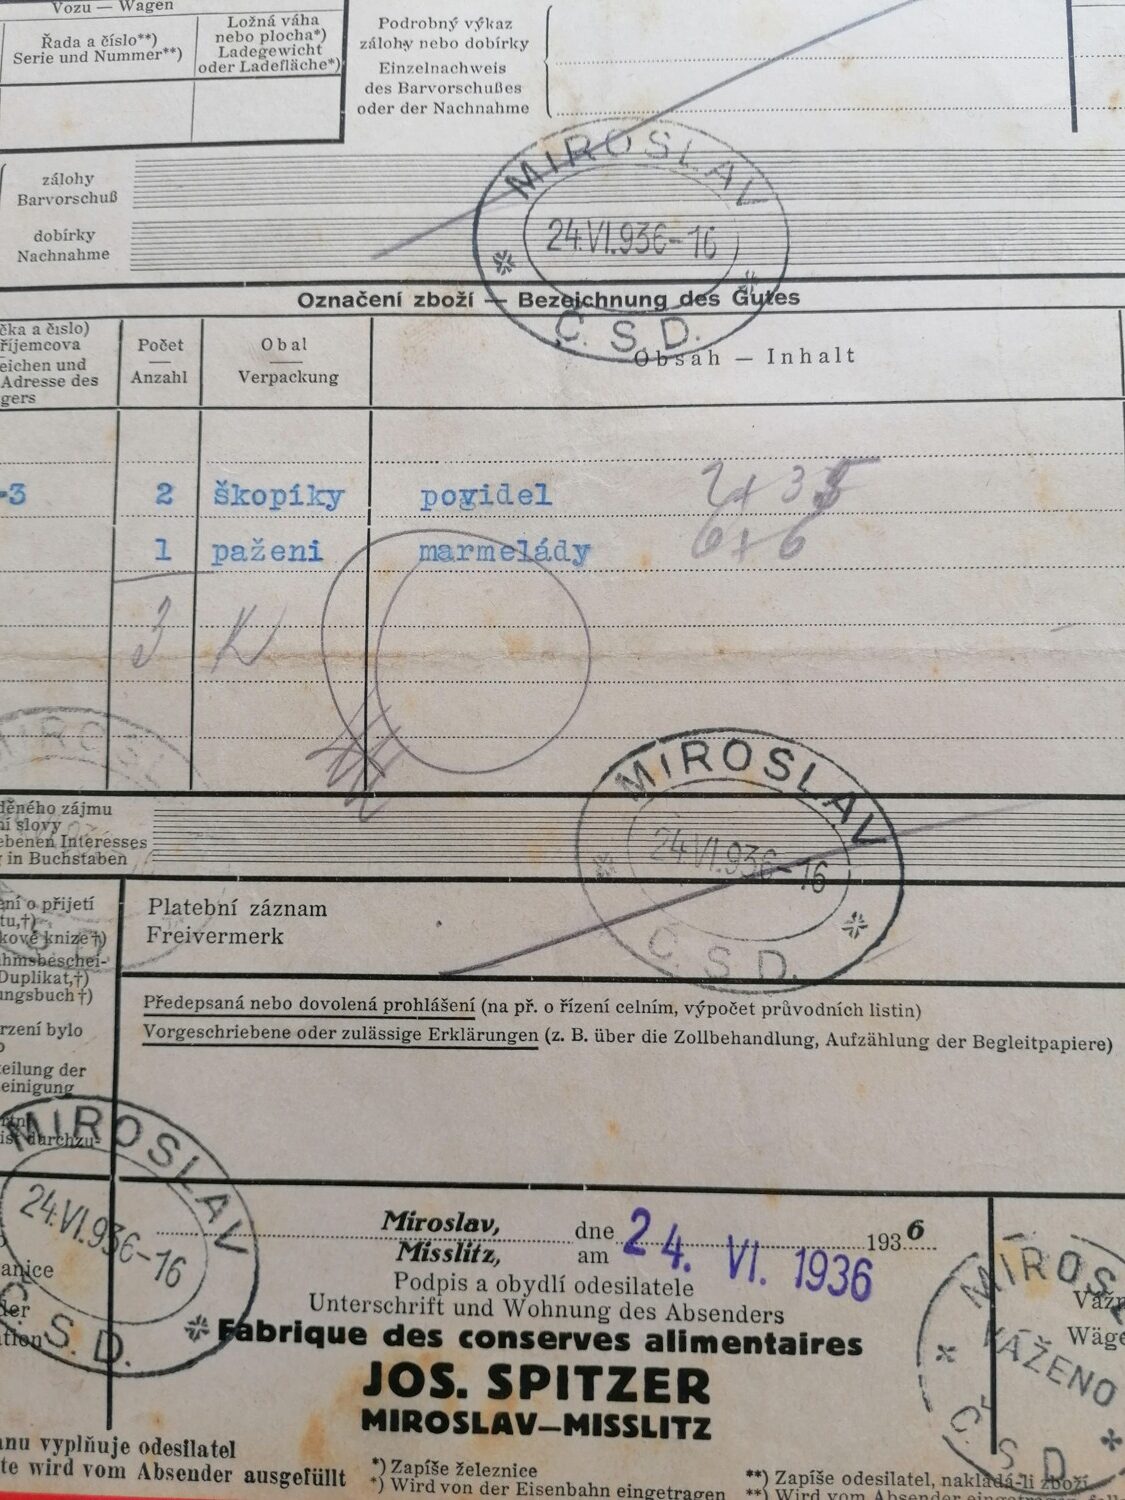 Vozu — Wagen
Řada a číslo**)
Serie und Nummer**)
Ložná váha
nebo plocha*)
Ladegewicht
oder Ladefläche*)
Podrobný výkaz
zálohy nebo dobírky
Einzelnachweis
des Barvorschußes
oder der Nachnahme
zálohy
Barvorschuß
dobírky
Nachnahme
MIROSLAV
24.VI.936-16
Č. S. D.
Označení zboží — Bezeichnung des Gutes
čka a číslo)
říjemcova
eichen und
Adresse des
gers
Počet
Anzahl
Obal
Verpackung
Obsah — Inhalt
-3 2 škopíky povidel 2x35
1 pažení marmelády 6x6
3 K
MIROSL
MIROSLAV
24.VI.936-16
Č. S. D.
děného zájmu
ní slovy
ebenen Interesses
g in Buchstaben
ení o přijetí
tu,†)
kové knize†)
ahmsbeschei-
Duplikat,†)
ungsbuch†)
rzení bylo
eilung der
einigung
durchzu-
Platební záznam
Freivermerk
Předepsaná nebo dovolená prohlášení (na př. o řízení celním, výpočet průvodních listin)
Vorgeschriebene oder zulässige Erklärungen (z. B. über die Zollbehandlung, Aufzählung der Begleitpapiere)
MIROSLAV
24.VI.936-16
Č. S. D.
Miroslav, dne 1936
Misslitz, am 24. VI. 1936
Podpis a obydlí odesilatele
Unterschrift und Wohnung des Absenders
Fabrique des conserves alimentaires
JOS. SPITZER
MIROSLAV—MISSLITZ
MIROSL
VÁŽENO
Č. S. D.
Wäge
anu vyplňuje odesilatel
te wird vom Absender ausgefüllt
*) Zapíše železnice
*) Wird von der Eisenbahn eingetragen
**) Zapíše odesilatel, nakládá-li zboží
**) Wird vom Absender eingetragen